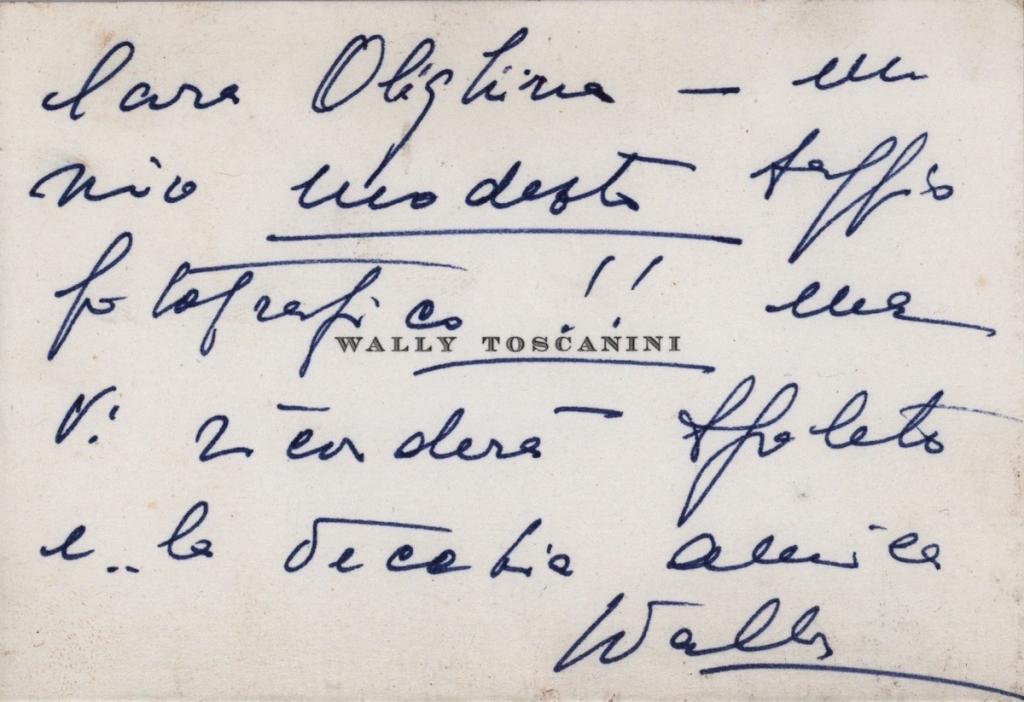 Cara Olighina — un
mio modesto saggio
fotografico!! ma
WALLY TOSCANINI
Vi ricorderà Spoleto
e.. la vecchia amica
Wally